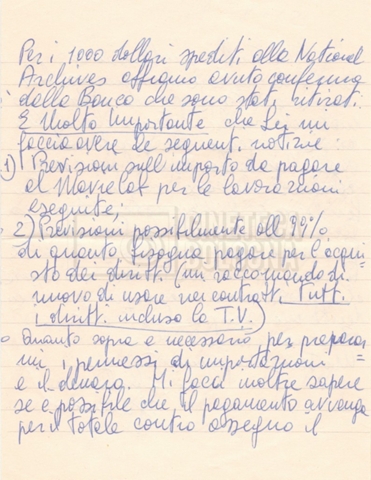 Per i 1000 dollari spediti alla National
Archives abbiamo avuto conferma
dalla Banca che sono stati ritirati.
E Molto Importante che Lei mi
faccia avere le seguenti notizie:
1) Previsioni sull'importo da pagare
al Movielab per le lavorazioni
eseguite;
2) Previsioni possibilmente all 99%
di quanto bisogna pagare per l'acqui
sto dei diritti (mi raccomando di
nuovo di usare nei contratti, Tutti
i diritti incluso la T.V.)
Quanto sopra è necessario per preparar
mi i permessi di importazioni
e il denaro. Mi faccia inoltre sapere
se è possibile che il pagamento avvenga
per il totale contro assegno il